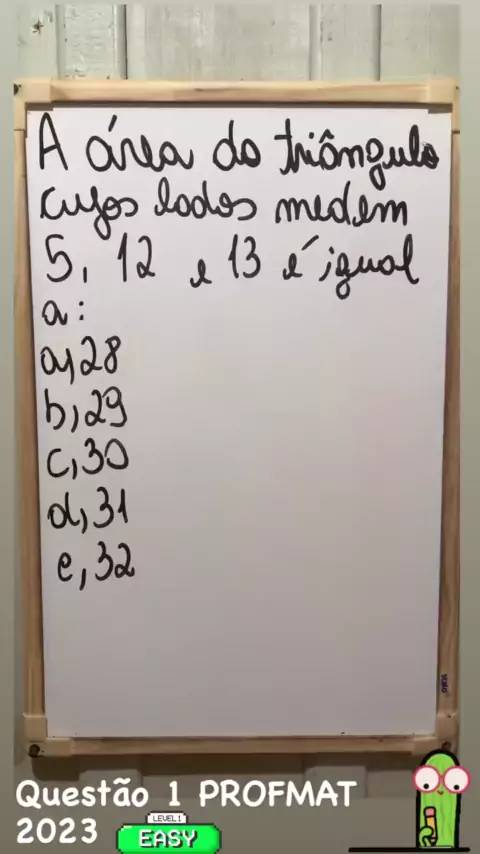 A área do triângulo
cujos lados medem
5, 12 e 13 é igual
a:
a, 28
b, 29
c, 30
d, 31
e, 32
Questão 1 PROFMAT
2023
LEVEL 1
EASY